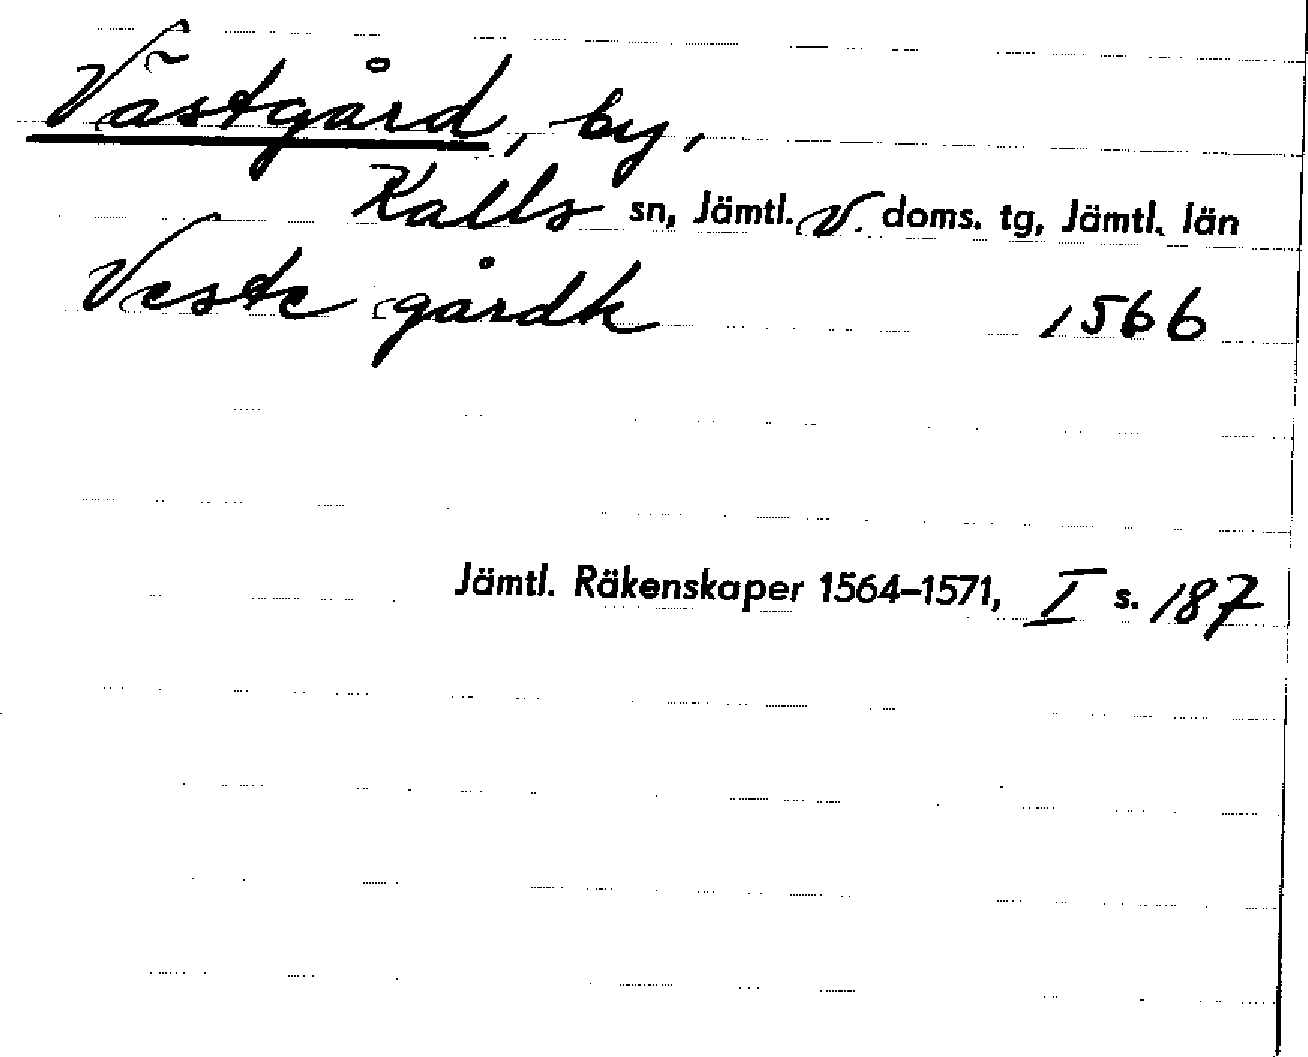 Västgård, by,
Kalls sn, Jämtl. V. doms. tg, Jämtl. län
Veste gårdh 1566
Jämtl. Räkenskaper 1564–1571, I s. 187